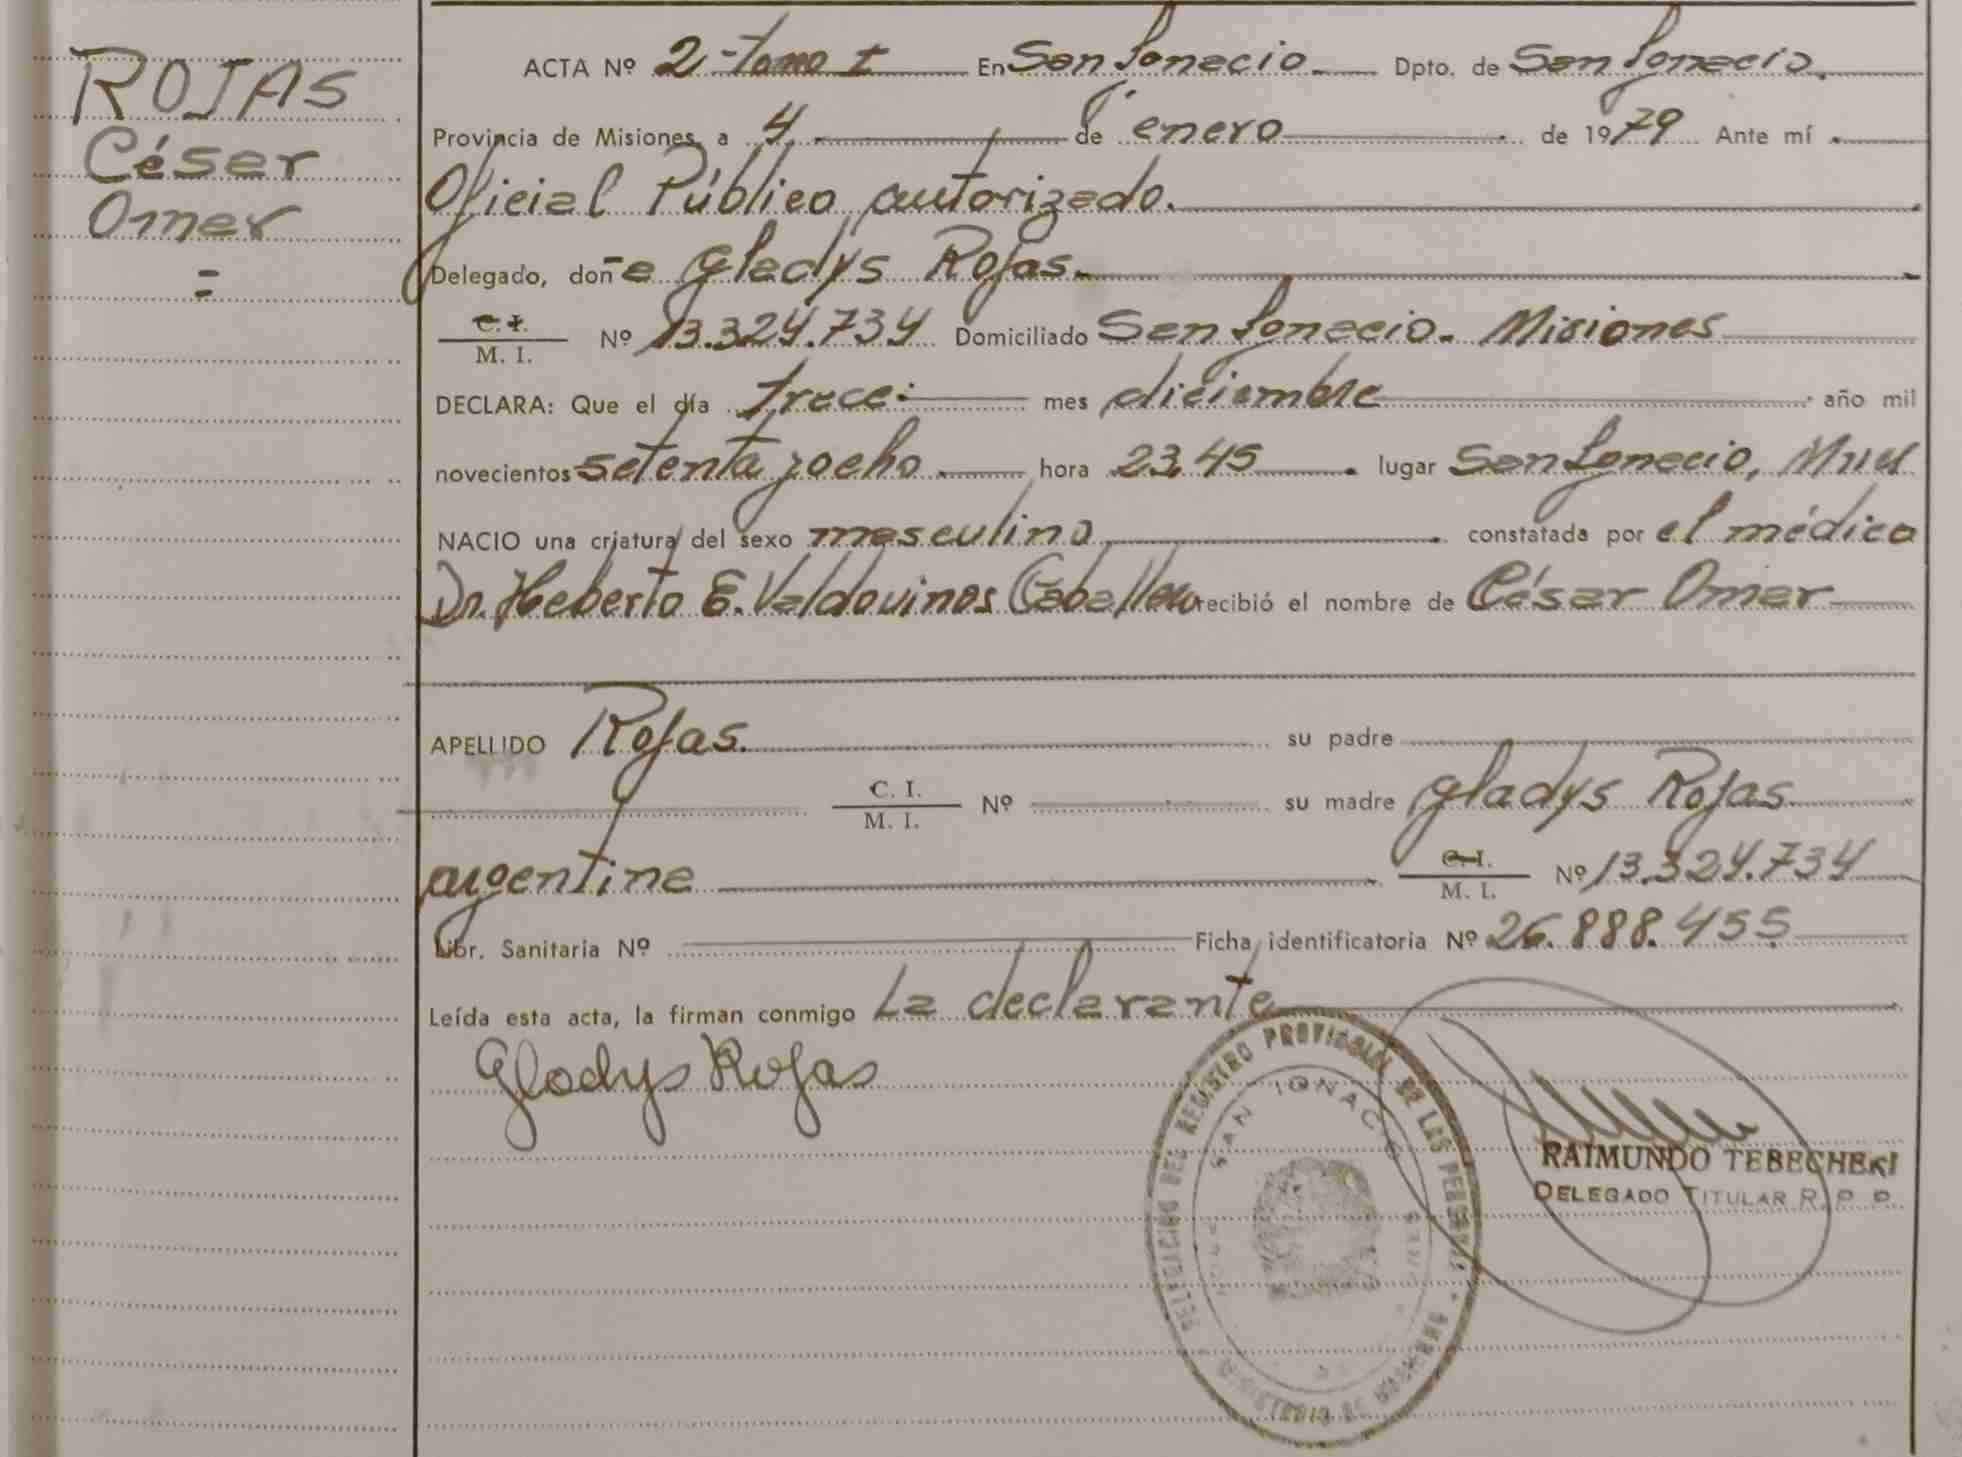 ROJAS
César
Omar
=
ACTA Nº 2 - Tomo I En San Ignacio. Dpto. de San Ignacio.
Provincia de Misiones, a 4 de enero de 1979 Ante mí
Oficial Público autorizado.
Delegado, doña Gladys Rojas.
C. I.
M. I. Nº 13.324.734 Domiciliado San Ignacio. Misiones
DECLARA: Que el día trece mes diciembre año mil
novecientos setenta y ocho hora 23,45 lugar San Ignacio, Mnes
NACIO una criatura del sexo masculino constatada por el médico
Dr. Heberto E. Valdovinos Caballero recibió el nombre de César Omar
APELLIDO Rojas. su padre
C. I.
M. I. Nº su madre Gladys Rojas
argentina C. I.
M. I. Nº 13.324.734
Libr. Sanitaria Nº Ficha identificatoria Nº 26.888.455
Leída esta acta, la firman conmigo La declarante
Gladys Rojas
DELEGACION DEL REGISTRO PROVINCIAL DE LAS PERSONAS
SAN IGNACIO
RAIMUNDO TEBECHERI
DELEGADO TITULAR R. P. P.